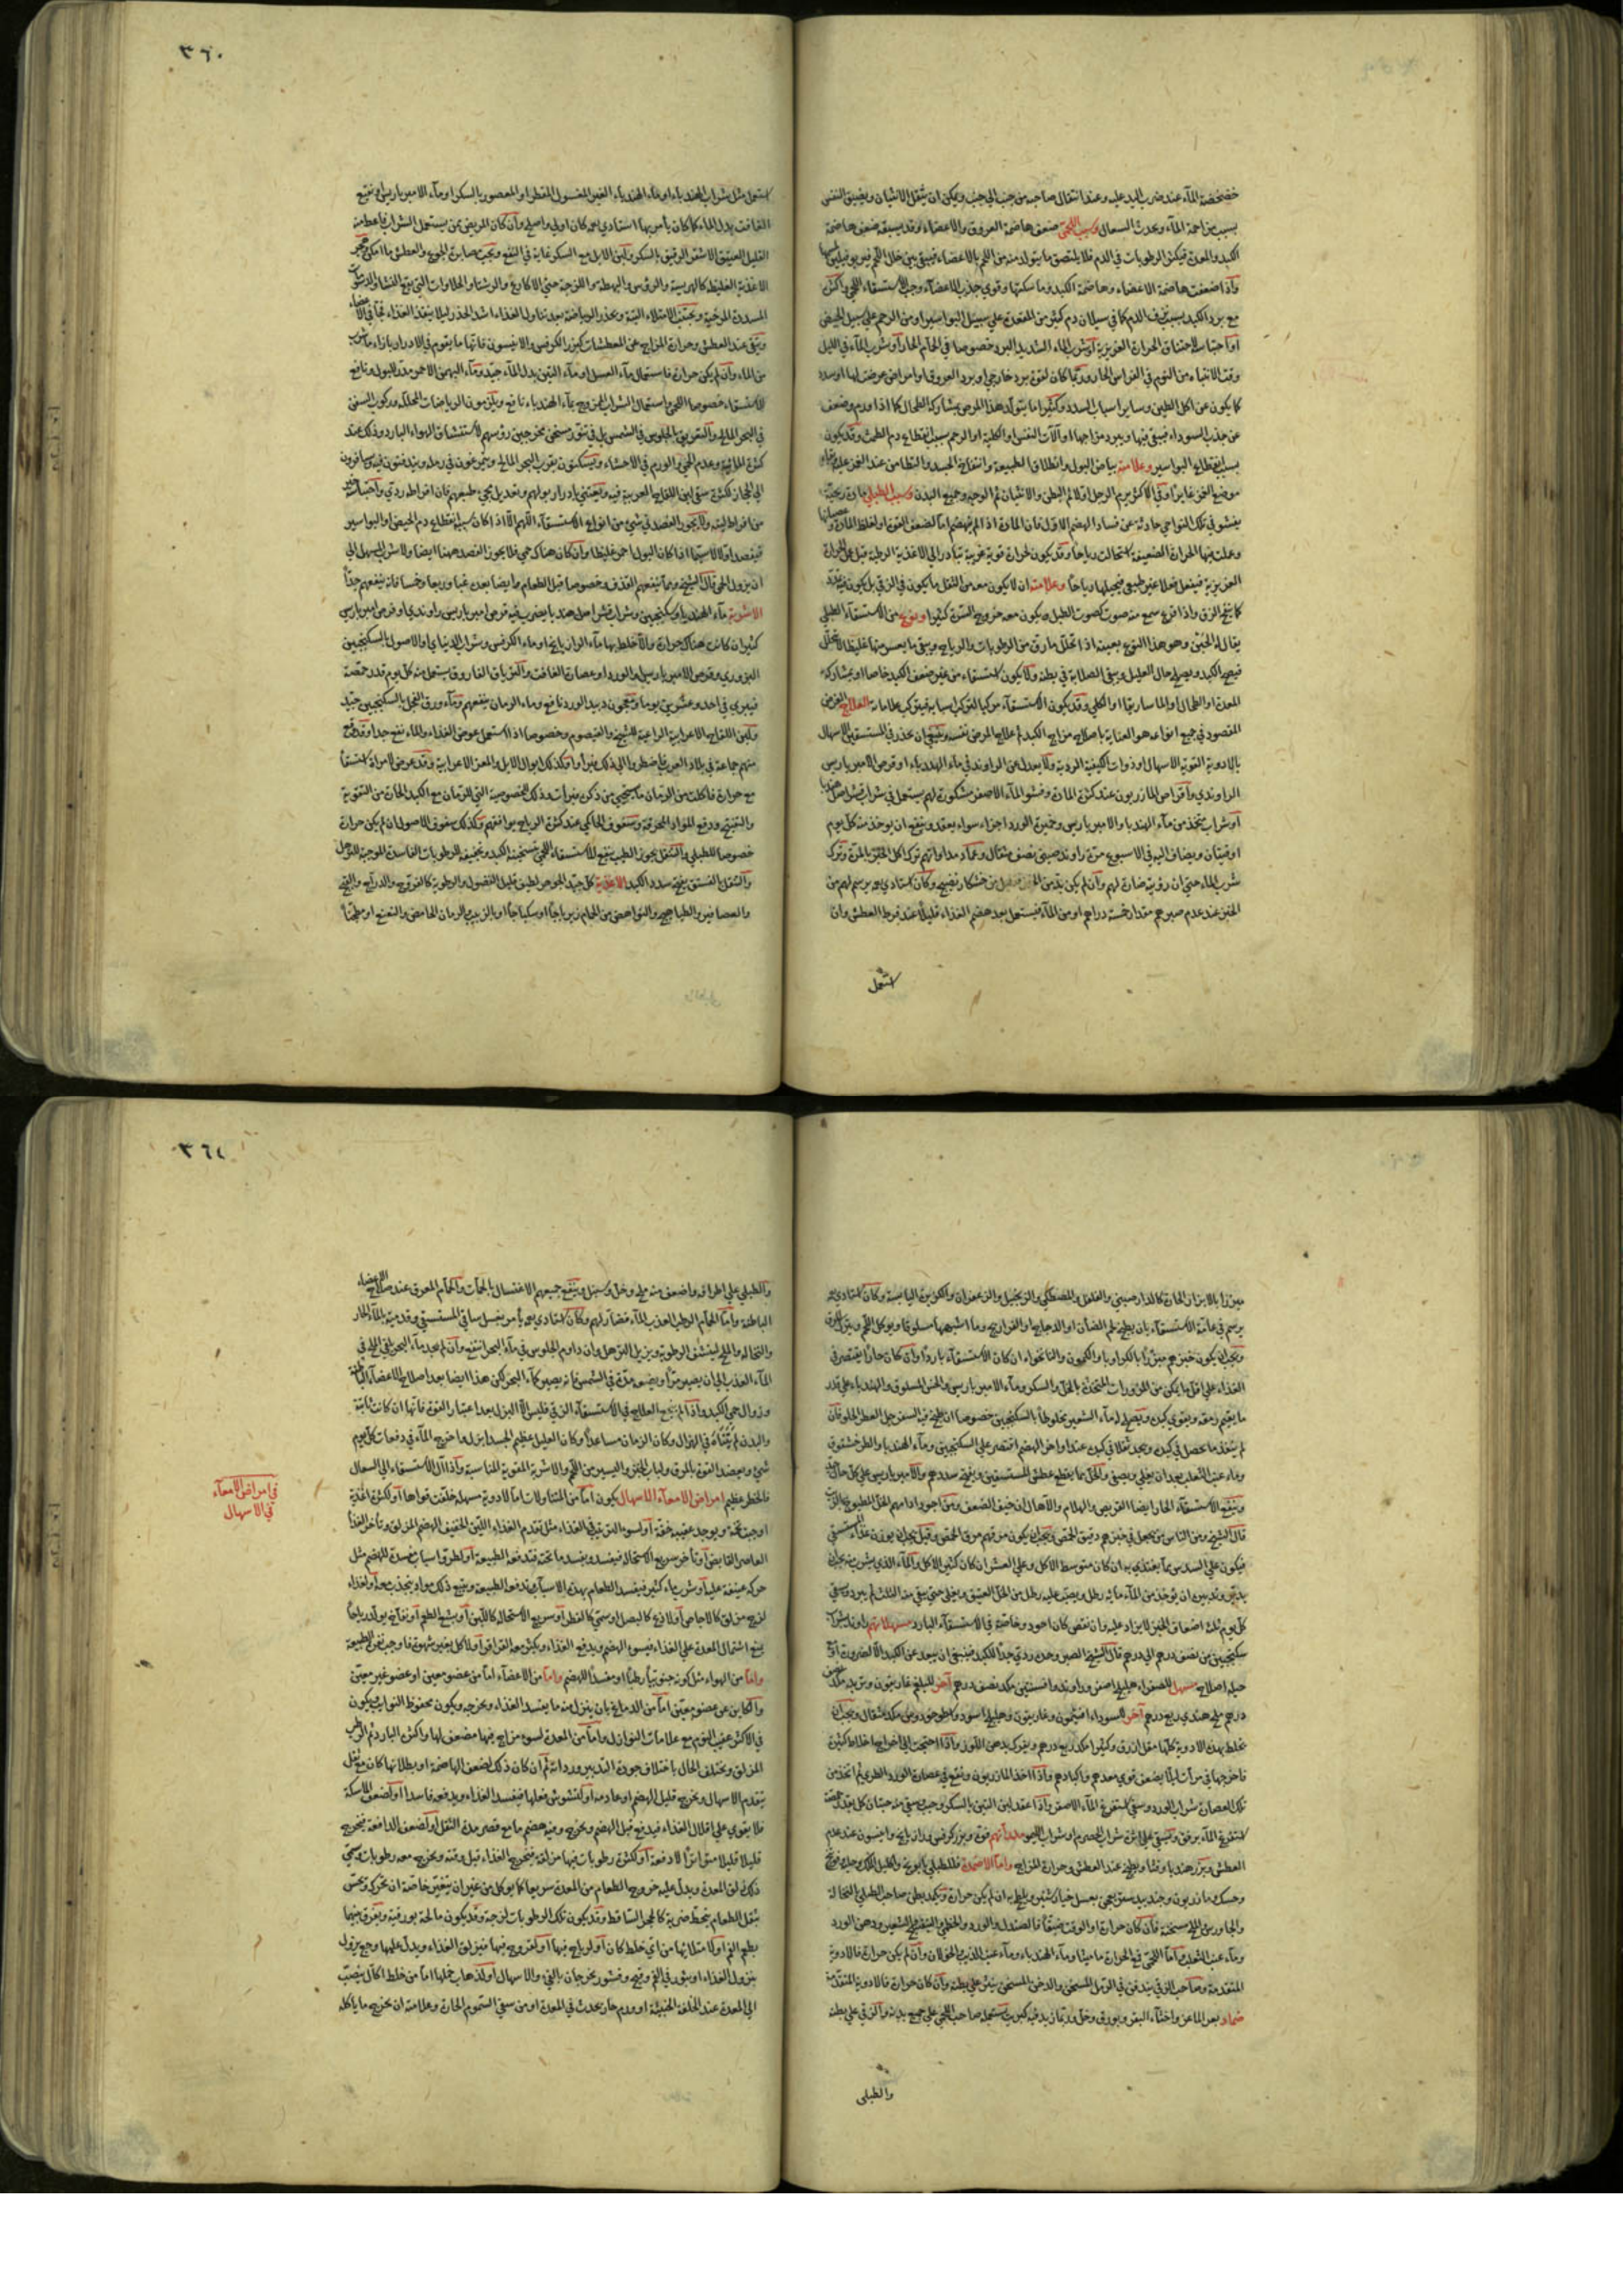 ٣٦٠
خضخضة الماء عند ضرب اليد عليه وعند انتقال صاحبه من جنب الى جنب ويمكن ان يثقل الانثيان ويضيق النفس
بسبب مزاحمة الماء ويحدث السعال وسبب اللحمى ضعف هاضمة العروق والاعضاء وقد يسبقه ضعف هاضمة
الكبد والمعدة فيكثر الرطوبات في الدم فلا يلتصق ما يتولد منه من اللحم بالاعضاء فيبقى بين خلل اللحم فيربو
واذا ضعفت هاضمة الاعضاء وهاضمة الكبد وماسكتها وقوي جذب الاعضاء وجب الاستسقاء اللحمي واكثر
مع برد الكبد بسبب نزف الدم كما في سيلان دم كثير من المقعدة على سبيل البواسير او من الرحم على سبيل الحيض
او احتباسه لاختناق الحرارة الغريزية او شرب الماء الشديد البرد خصوصا في الحمام الحار او شرب الماء في الليل
وقت الانتباه من النوم في الفراش الحار وربما كان لقوة برد خارجي او برد العروق او امراض عرضت لها او سدد
كما يكون عن اكل الطين وساير اسباب السدد وكثيرا ما يتولد هذا المرض بمشاركة الطحال كما اذا ورم وضعف
عن جذب السوداء فيبقى فيها ويبرد مزاجها او آلات النفس او الكلية او الرحم بسبب انقطاع دم الطمث وقد يكون
بسبب انقطاع البواسير وعلامته بياض البول وانطلاق الطبيعة وانتفاخ الجسد والتطامن عند الغمز عليه
موضع الغمز غايرا وفي الاكثر يرم الرجل اولا ثم البطن والانثيان ثم الوجه وجميع البدن وسبب الطبلي مادة ريحية
يفشو في تلك النواحي حادثة عن فساد الهضم الاول فان المادة اذا لم تنهضم اما لضعف القوة او لغلظ المادة
وعملت فيها الحرارة الضعيفة استحالت رياحا وقد يكون لحرارة قوية غريبة تبادر الى الاغذية الرطبة قبل عمل الحرارة
الغريزية فيفعل فعلا غير طبيعي فيحيلها رياحا وعلامته ان لا يكون معه من الثقل ما يكون في الزقي بل يكون فيه تمدد
كما ينفخ الزق واذا قرع سمع منه صوت كصوت الطبل ويكون معه خروج السرة كثيرا ونوع من الاستسقاء الطبلي
يقال له الحبن وهو هذا النوع بعينه اذا تحلل ما رق من الرطوبات والرياح وبقي ما يعسر منها غليظا لا يتحلل
فيصح الكبد ويصلح حال العليل ويبقى الصلابة في بطنه ولا يكون استسقاء من غير ضعف الكبد خاصا او بمشاركة
المعدة او الطحال والماساريقا او الكلى وقد يكون الاستسقاء مركبا لتركب اسبابه فيتركب علاماته العلاج الغرض
المقصود في جميع انواعه هو العناية باصلاح مزاج الكبد ثم علاج المرض نفسه وينبغي ان يحذر في المستسقين الاسهال
بالادوية القوية الاسهال او ذوات الكيفية الردية ولا يعدل عن الراوند في ماء الهندباء او قرص الامبرباريس
الراوندي واقراص المازريون عند كثرة المادة وفشو الماء الاصفر مشكورة لهم يستعمل في شراب قشر اصل
او شراب متخذ من ماء الهندبا والامبرباريس وخميرة الورد اجزاء سواء يعقد وينفع ان يوخذ منه كل يوم
اوقيتان ويضاف اليه في الاسبوع مرة راوند صيني نصف مثقال وعماد مداواتهم ترك اكل الخبز بالمرة وترك
شرب الماء حتى ان رؤيته ضارة لهم وان لم يكن بد من الخبز فقليل من خشكار نضيج وكان استادي يرسم لهم من
الخبز عند عدم صبرهم مقدار خمسة دراهم او من الماء فيستعمل بعد هضم الغذاء قليلا عند فرط العطش وان
استعمل
استعمل مثل شراب الهندباء او ماء الهندباء الغير المغسول المقطر او المعصور بالسكر او ماء الامبرباريس او نقيع
الغافت بدل الماء كما كان يأمر بها استادي كان اولى واصلح وان كان المريض ممن يستعمل الشراب فاعطه منه
القليل العتيق الاشقر الرقيق بالسكر ولبن الابل مع السكر غاية في النفع ويجب مصابرة الجوع والعطش ما امكن
الاغذية الغليظة كالهريسة والرؤس والبهطة واللزجة حتى الاكارع والرشتا والحلاوات التي يقع النشا
المسددة المرخية ويجتنب الامتلاء البتة ويحذر الرياضة بعد تناول الغذاء اشد الحذر ليلا ينفذ الغذاء
ويتقى عند العطش وحرارة المزاج عن المعطشات كبزر الكرفس والانيسون فانها ما يقوم في الادرار بازاء
من الماء وان لم يكن حرارة فاستعمال ماء العسل او ماء التين بدل الماء جيد وماء البهمن الاحمر مدر للبول ونافع
للاستسقاء خصوصا اللحمي واستعمال الشراب الممزوج بماء الهندباء نافع ويلزمون الرياضات المحللة وركوب السفن
في البحر المالح والتعريق بالجلوس في الشمس بل في تنور مسخن مخرجين رؤسهم لاستنشاق الهواء البارد وذلك عند
كثرة المائية وعدم الحمى والورم في الاحشاء ويسكنون بقرب البحر المالح ويتمرغون في رمله ويندفنون فيه ويسافرون
الى الحجاز لكثرة سقي لبن اللقاح العربية فيه ويعتني بادرار بولهم وتعديل مجي طبيعتهم فان افراطه ردي
من افراطه البتة ولا يجوز الفصد في شي من انواع الاستسقاء اللهم الا اذا كان سببه انقطاع دم الحيض والبواسير
فيفصد اولا لا سيما اذا كان البول احمر غليظا وان كان هناك حمى فلا يجوز الفصد ههنا ايضا ولا شرب المسهل الى
ان يزول الحمى قال الشيخ ومما ينفعهم القذف وخصوصا قبل الطعام وايضا بعده غبا وربعا وخمسا فانه ينفعهم جدا
الاشربة ماء الهندبا وسكنجبين وشراب قشر اصل هندبا يضرب فيه قرص امبرباريس راوندي او قرص امبرباريس
كثير ان كانت هناك حرارة والا خلط بها ماء الرازيانج او ماء الكرفس وشراب الديناري والاصول بالسكنجبين
البزوري وقرص الامبرباريس او الورد او عصارة الغافت والترياق الفاروق يستعمل منه كل يوم قدر حمصة
فيبري في احد وعشرين يوما ومعجون دبيد الورد نافع وماء الرمان ينفعهم وماء ورق الفجل بالسكنجبين جيد
ولبن اللقاح الاعرابية الراعية للشيح والقيصوم وخصوصا اذا استعمل عوض الغذاء والماء نفع جدا
منهم جماعة في بلاد العرب فاضطروا الى ذلك فبرأوا وكذلك ابوال الابل والمعز الاعرابية وقد عرض لامرأة استسقاء
مع حرارة فاكلت من الرمان ما يستحيى من ذكره فبرأت وذلك للخصوصية التي للرمان مع الكبد الحارة من التقوية
والتفتيح ودفع المواد المحرقة وسفوف الخاكي عند كثرة الرياح يوافقهم وكذلك سفوف الاصول ان لم يكن حرارة
خصوصا للطبلي والتنقل بجوز الطيب ينفع للاستسقاء اللحمي لتسخينه الكبد وتجفيفه للرطوبات الفاسدة الموجبة للترهل
والتنقل بالفستق يفتح سدد الكبد الاغذية كل جيد الجوهر لطيف قليل الفضول والرطوبة كالفروج والدراج والقبج
والعصافير والطياهيج والنواهض من الحمام زيرباجا او سكباجا او بالزبيب والرمان الحامض والنعنع او مطجنا
٣٦١
مبزرا بالابزار الحارة كالدارصيني والفلفل والمصطكي والزنجبيل والزعفران والكزبرة اليابسة وكان استادي
يرسم في عامة الاستسقاء بان يطبخ لهم الضأن او الدجاج او الفراريج وما اشبهها مسلوقا ويوكل اللحم
ويجب ان يكون خبزهم مبزرا بالكراويا والكمون والنانخواه ان كان الاستسقاء باردا وان كان حارا يقتصر في
الغذاء على اقل ما يمكن من المزورات المتخذة بالخل والسكر وماء الامبرباريس والخس المسلوق والهندباء على قدر
ما يقيم رمقه ويقوي كبده ويصلح له ماء الشعير مخلوطا بالسكنجبين خصوصا ان طبخ فيه السفرجل العطر الحلو فان
لم ينفذ ما يحصل في كبده ويجد ثقلا في كبده عند اواخر الهضم اقتصر على السكنجبين وماء الهندبا والطرخشقوق
وماء عنب الثعلب بعد ان يغلي ويصفى والخل مما يقطع عطش المستسقين ويفتح سددهم والامبرباريس على كل حال
وينفع الاستسقاء الحار ايضا القريص والهلام والآهال ان خيف الضعف ومن اجود ادامهم الخل المطبوخ
قال الشيخ ومن الناس من يجعل في خبزهم دقيق الحمص ويجب ان يكون مرقهم مرق الحمص وقيل يجب ان يوزن غذاء
فيكون على السدس مما يغتذي به ان كان متوسط الاكل وعلى العشر ان كان كثير الاكل والماء الذي يشرب يجب ان
يدبر تدبيره بان يوخذ من الماء مائه رطل ويصب عليه رطل من الخل العتيق ويغلى حتى يبقى منه الثلث ثم يبرد ويسقى
كل يوم ثلثة اضعاف الخبز لا يزاد عليه وان نقص كان اجود وخاصة في الاستسقاء البارد مسهلاتهم راوند
سكنجبين من نصف درهم الى درهم قال الشيخ الصبر وحده ردي جدا للكبد فينبغي ان يبعد عن الكبد الا لضرورة او مع
حيلة اصلاح مسهل للصفراء هليلج اصفر وراوند وافسنتين مكد نصف درهم آخر للبلغم غاريقون وتربد مكد
درهم ملح هندي ربع درهم آخر للسوداء افتيمون وغاريقون وهليلج اسود واسطوخودوس مكد مثقال ويجب ان
تخلط بهذه الادوية كلها مقل ازرق وكثيرا مكد ربع درهم ويفرك بدهن اللوز واذا احتيجت الى اخراج اخلاط كثيرة
فاخرجها في مرات ليلا يضعف قوى معدهم واكبادهم واذا اخذ المازريون ونقع في عصارة الورد الطري ثم اتخذ من
تلك العصارة شراب الورد وسقي استفرغ الماء الاصفر واذا عقد لبن التين بالسكر وحبب وسقي منه حبتان كل
استفرغ الماء برفق ويسقى على اثره شراب الحصرم او شراب الليمو مبدأهم فوة وبزر كرفس ورازيانج وانيسون عند عدم
العطش وبزر هندبا وقثا وبطيخ عند العطش وحرارة المزاج واما الاضمدة فللطبلي بابونج واكليل الملك وحلبة
وحسك ومازريون وجندبيدستر يعجن بعسل خيارشنبر ويلطخ به ان لم يكن حرارة ويكمد بطن صاحب الطبلي بالنخالة
والجاورس والملح مسخنة فان كان حرارة او الوقت ضيقا فالصندل والورد والخطمي والبنفسج والشعير ودهن الورد
وماء عنب الثعلب اما اللحمى فع الحرارة ماميثا وماء الهندباء وماء عنب الذيب الحولان وان لم يكن حرارة فالادوية
المتقدمة وصاحب الزقي يندفن في الرمل المسخن والدخن المسخن ينثر على بطنه وان كان حرارة فالادوية المتقدمة
ضماد بعر الماعز واخثاء البقر وبورق وخل وربما زيد فيه كبريت يستعمله صاحب اللحمي على جميع بدنه والزقي على بطنه
والطبلي
والطبلي على اطرافه واضعف منه ملح وخل وسنبل وينفع جميعهم الاغتسال بالحمآت والحمام المعرق عند صلاح الاعضاء
الباطنة واما الحمام الرطب العذب الماء فضار لهم وكان استادي يأمر بغسل ساقي المستسقي وقدميه بالماء الحار
والنخالة والملح لينشف الرطوبة ويزيل الترهل وان داوم الجلوس في ماء البحر انتفع وان لم يجد ماء البحر القي الملح في
الماء العذب الى ان يصير مرا ويضعه مدة في الشمس فانه يصير كماء البحر لكن هذا ايضا بعد اصلاح الاعضاء الباطنة
وزوال حمى الكبد واذا لم ينجح العلاج في الاستسقاء الزقي فليس الا البزل بعد اعتبار القوة فانها ان كانت ثابتة
والبدن لم يتناه في الهزال وكان الزمان مساعدا وكان العليل عظيم الجسد ابزل لها خروج الماء في دفعات كل يوم
شئ ويعضد القوة بالمرق ولباب الخبز واليسير من اللحم والاشربة المقوية المناسبة واذا آل الاستسقاء الى السعال
فالخطر عظيم امراض الامعاء الاسهال يكون اما من المتناولات اما لادوية مسهلة خلفت قواها او لكثرة اغذية
اوجبت تخمة ويوجد عقيبه خفة او لسوء الترتيب في الغذاء مثل تقدم الغذاء اللين الخفيف الهضم المزلق وتأخر الغذا
العاصر القابض او تأخر سريع الاستحالة فيفسد ويفسد ما تحته فتدفعه الطبيعة او لطرو اسباب مفسدة للهضم مثل
حركة عنيفة عليه او شرب ماء كثير فيفسد الطعام بهذه الاسباب فتدفعه الطبيعة ويتبع ذلك مواد ينجذب معه او لغذاء
لزج مزلق كالاجاص او لاذع كالبصل او سمي كالفطر او سريع الاستحالة كاللبن او بشع الطعم او نفاخ يولد رياحا
يمنع اشتمال المعدة على الغذاء فيسوء الهضم ويدفع الغذاء ويكثر معه القراقر او للاكل بغير شهوة فاوجب نفور الطبيعة
واما من الهواء مثل كونه جنوبيا رطبا او مفسدا للهضم واما من الاعضاء اما من عضو معين او عضو غير معين
والكاين عن عضو معين اما من الدماغ بان ينزل منه ما يفسد الغذاء ويخرجه ويكون محفوظ النوايب ويكون
في الاكثر عقيب النوم مع علامات النوازل واما من المعدة لسوء مزاج فيها مضعف لها واكثره البارد ثم الرطب
المزلق ويختلف الحال باختلاف جودة التدبير ورداءته ثم ان كان ذلك لضعف الهاضمة او بطلانها كان مع ثقل
يتقدم الاسهال ويخرج قليل الهضم او عادمه او لتشوش فعلها فيفسد الغذاء ويدفعه فاسدا او لضعف الماسكة
فلا يقوى على اقلال الغذاء فيدفع قبل الهضم ويخرج وفيه هضم ما مع قصر مدة الثقل او لضعف الدافعة فيخرج
قليلا قليلا متواترا لا دفعة او لكثرة رطوبات فيها مزلقة فيخرج الغذاء قبل وقته ويخرج معه رطوبات ويسمى
ذلك زلق المعدة ويدل عليه خروج الطعام من المعدة سريعا كما يوكل من غير ان يتغير خاصة ان تحرك ويحس
بثقل الطعام ينحط ضربة كالحجر الساقط وقد يكون تلك الرطوبات لزجة وقد يكون مالحة بورقية ويفرق بينهما
بطعم الفم او لامتلائها من اي خلط كان او لرياح فيها او لقروح فيها فيزلق الغذاء ويدل عليها وجع يزول
بنزول الغذاء او بثور في الفم وقيح وقشور يخرجان بالقيء والاسهال او لذهاب خملها اما من خلط اكال ينصب
الى المعدة عند الخلفة الخبيثة او ورم حار يحدث في المعدة او من سقي السموم الحارة وعلامته ان يخرج ما ياكله
في امراض الامعآء
في الاسهال